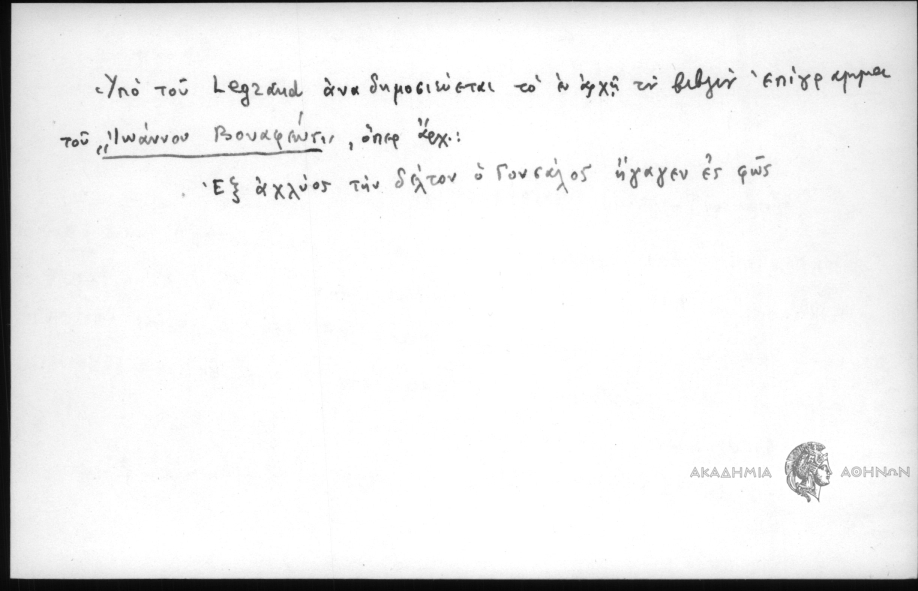 Ὑπὸ τοῦ Legrand ἀναδημοσιεύεται τὸ ἐν ἀρχῇ τοῦ βιβλίου ἐπίγραμμα
τοῦ „Ἰωάννου Βοναφέως", ὅπερ ἄρχ.:
Ἐξ ἀχλύος τὴν δέλτον ὁ Γονσάλος ἤγαγεν ἐς φῶς
ΑΚΑΔΗΜΙΑ ΑΘΗΝΩΝ